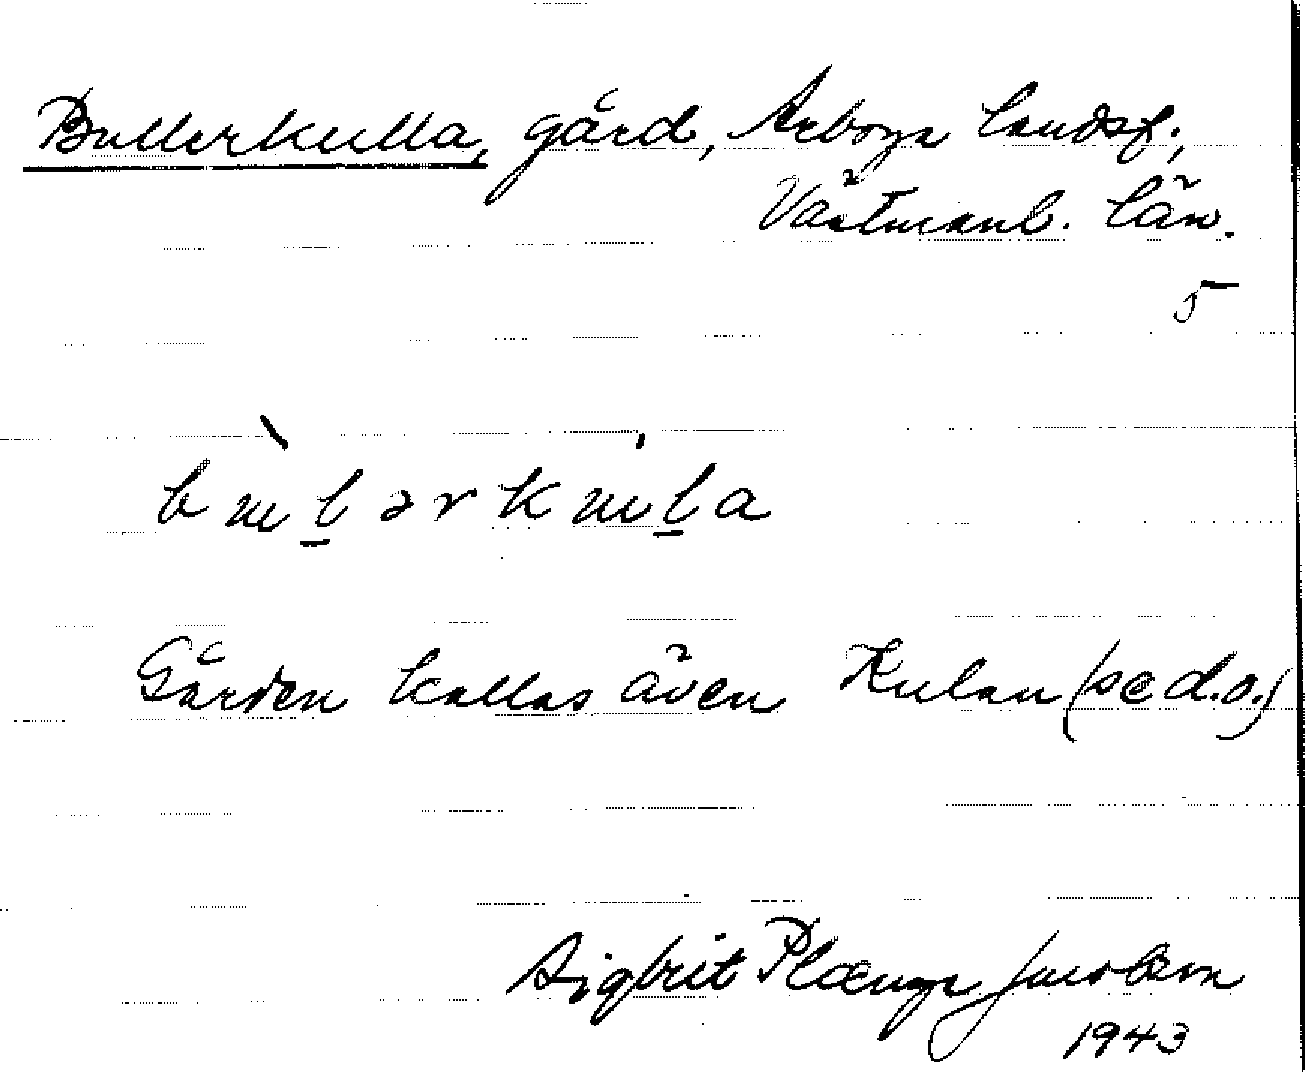 Bullerkulla, gård, Arboga landsf.,
Västmanl. län.
5
bu̇l̠ərku̇l̠a
Gården kallas även Kulan (se d.o.)
Sigbrit Plænge Jacobson
1943